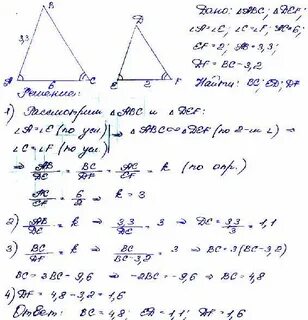 Дано: △ABC; △DEF;
∠A=∠E; ∠C=∠F; AC=6;
EF=2; AB=3,3;
DF=BC-3,2
Найти: BC; ED; DF
B
3,3
A
6
C
D
E
2
F
Решение:
1) Рассмотрим △ABC и △DEF:
∠A=∠E (по усл)
∠C=∠F (по усл)
⇒ △ABC∞△DEF (по 2-м ∠)
⇒ AB/DE = BC/DF = AC/EF = k (по опр.)
AC/EF = 6/2 ⇒ k = 3
2) AB/DE = k ⇒ 3,3/DE = 3 ⇒ DE = 3,3/3 = 1,1
3) BC/DF = k ⇒ BC/BC-3,2 = 3 ⇒ BC=3(BC-3,2)
BC=3BC-9,6 ⇒ -2BC=-9,6 ⇒ BC=4,8
4) DF = 4,8-3,2=1,6
Ответ: BC=4,8; ED=1,1; DF=1,6